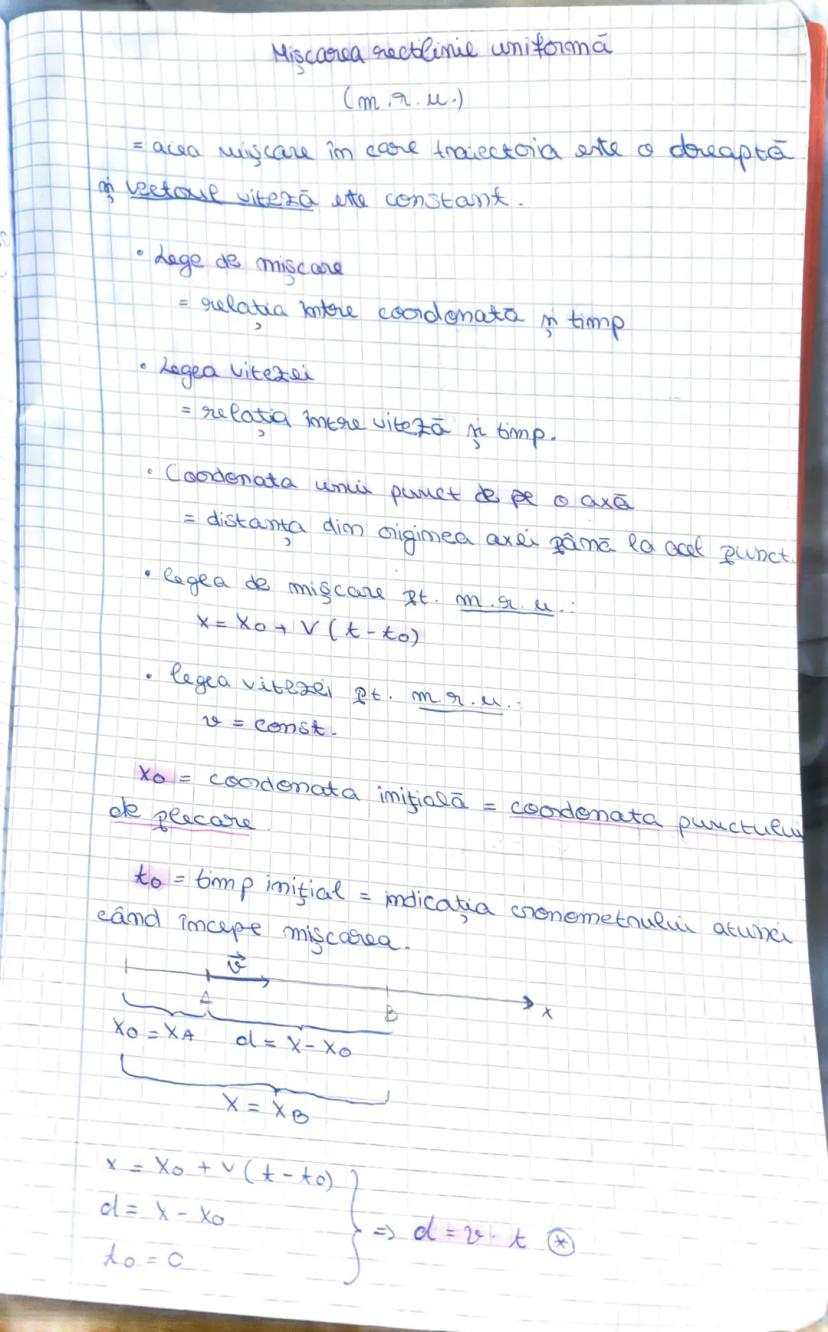 Mișcarea rectlinie uniformă
(m.r.u.)
= acea mișcare în care traiectoria este o dreaptă
și vectorul viteză este constant.
• Lege de mișcare
= relația între coordonată și timp
• Legea vitezei
= relația între viteză și timp.
• Coordonata unui punct de pe o axă
= distanța din originea axei până la acel punct.
• legea de mișcare pt. m.r.u.:
x = x₀ + v (t - t₀)
• legea vitezei pt. m.r.u.:
v = const.
x₀ = coordonata inițială = coordonata punctului
de plecare.
t₀ = timp inițial = indicația cronometrului atunci
când începe mișcarea.
v⃗
A B x
x₀ = x_A d = x - x₀
x = x_B
x = x₀ + v (t - t₀)
d = x - x₀ } => d = v · t ⊛
t₀ = 0